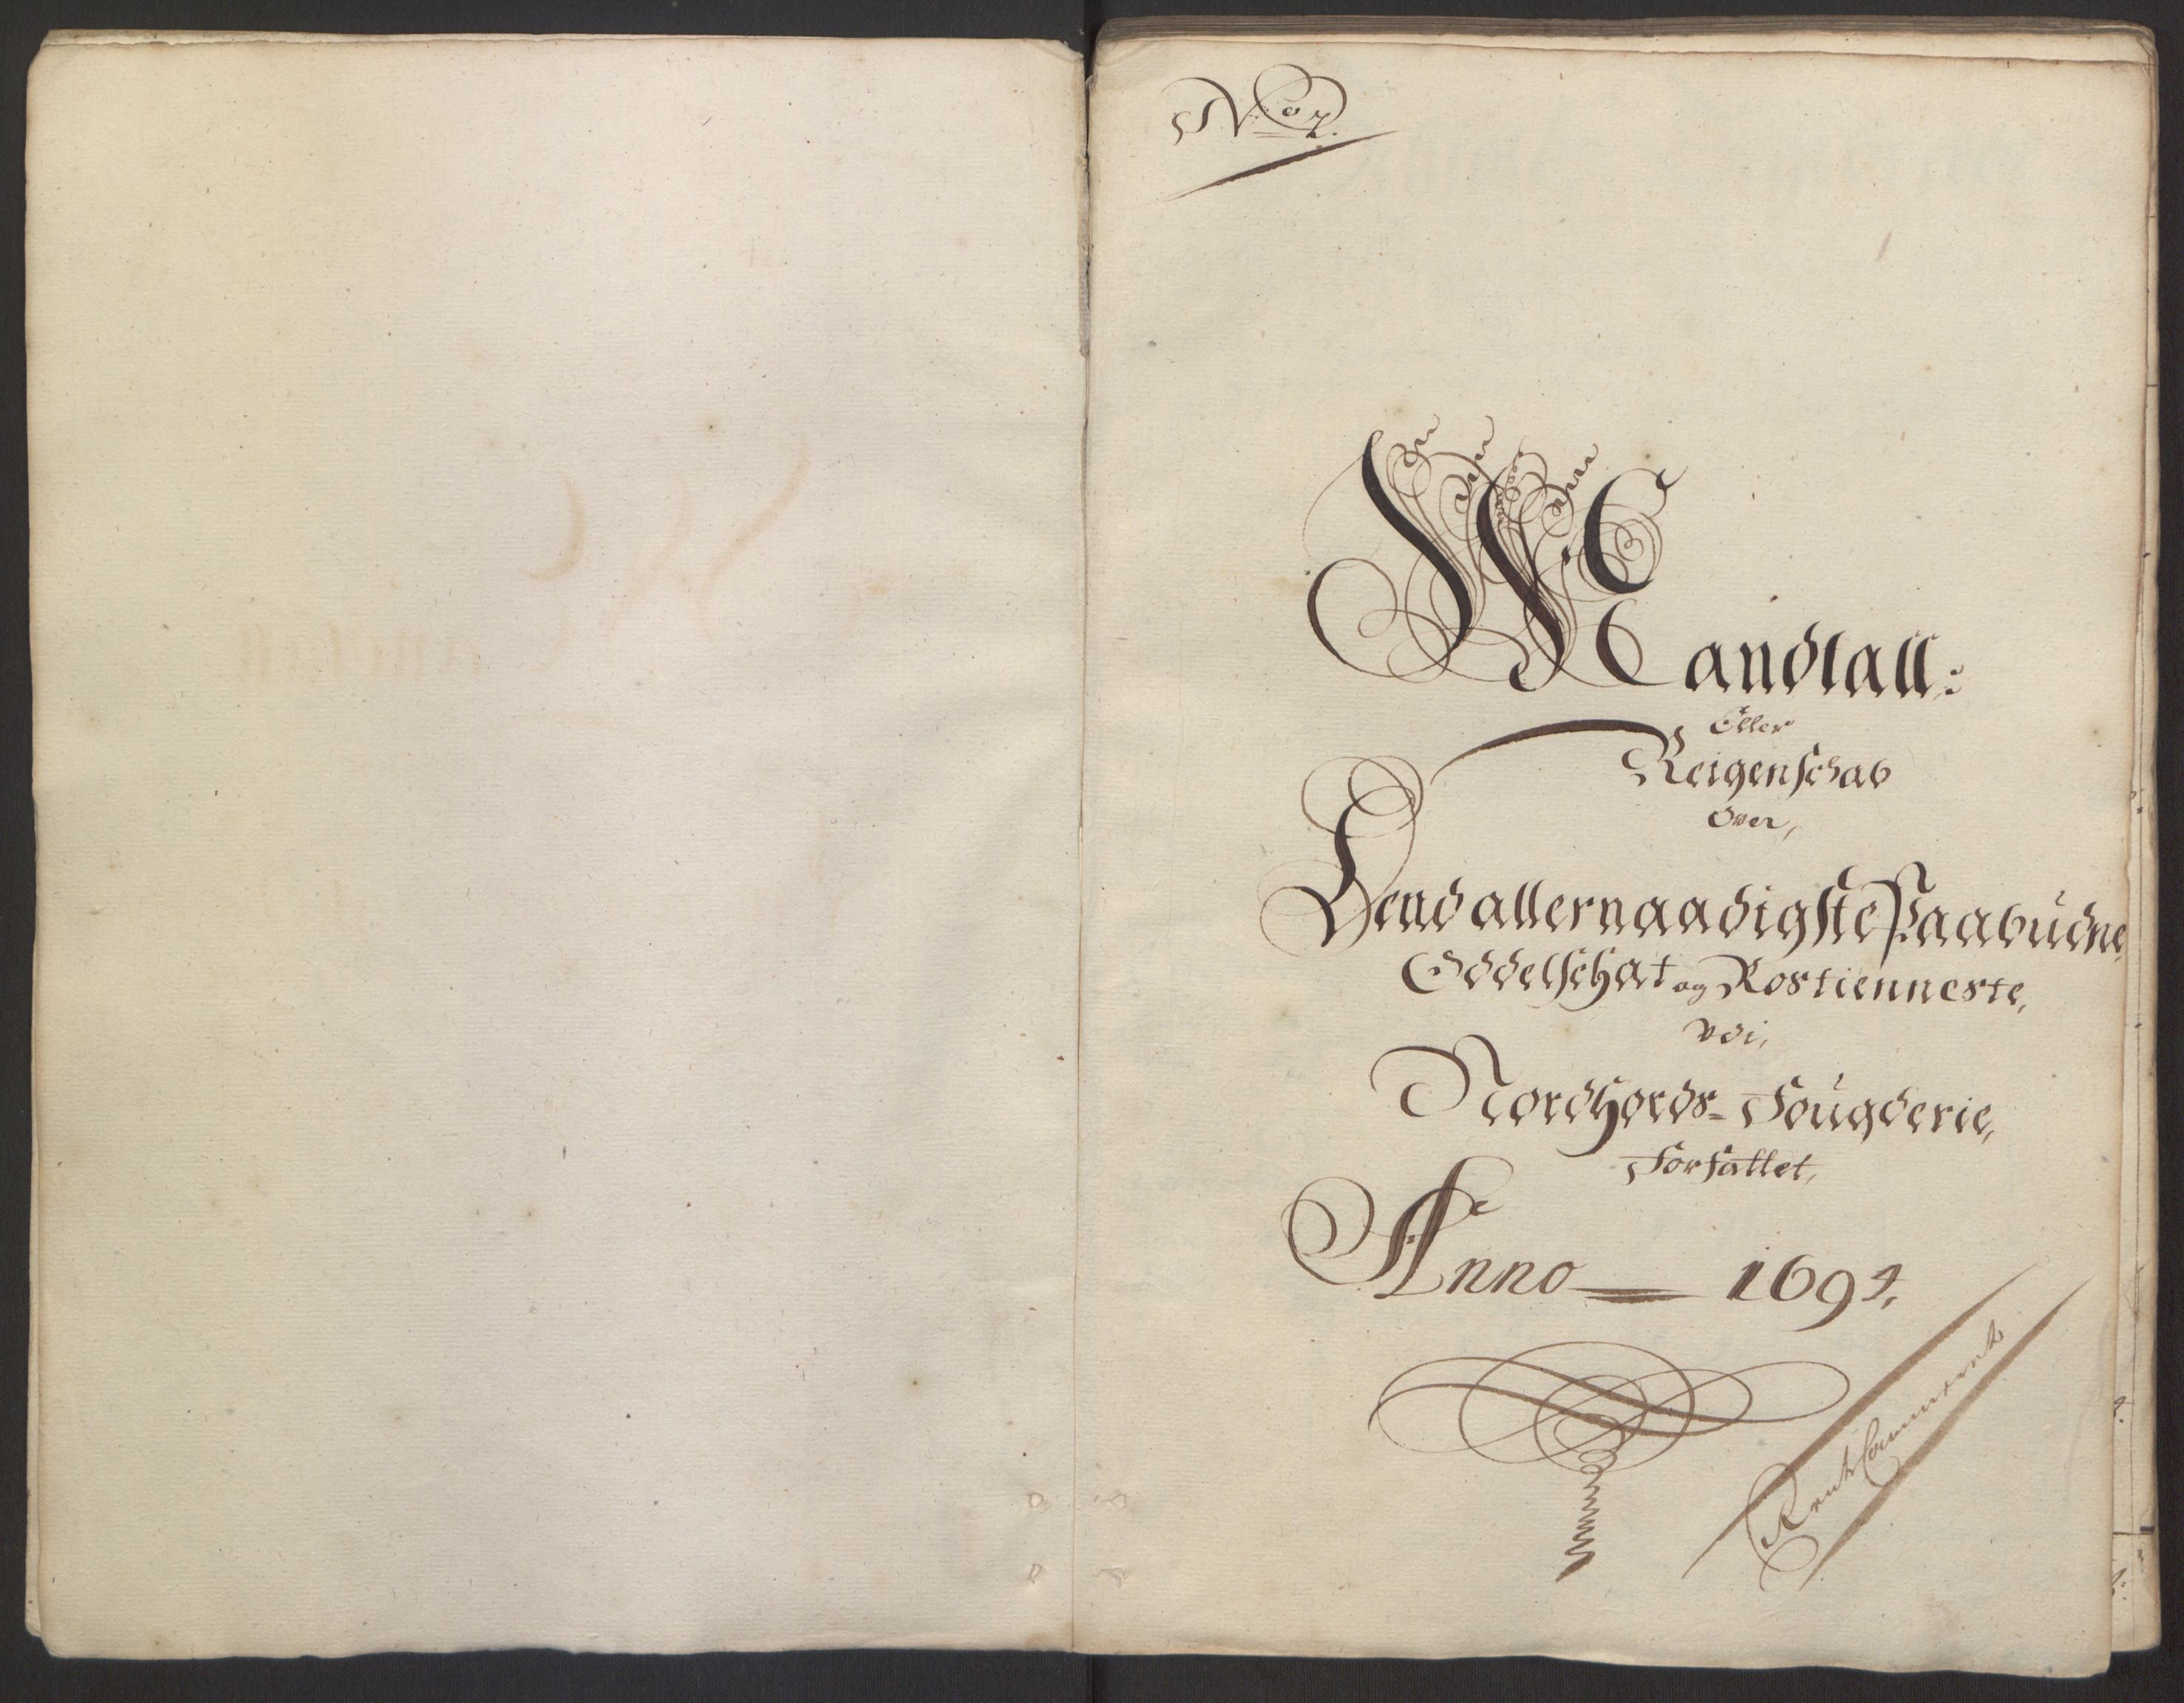 Mandtall:
Eller
Reigenschab
Over,
Dend allernaadigste Paabudne,
Oddelschat og Rostienneste,
vdi,
Nordhords=Fougderie,
Forfattet,
Anno 1694.
Rentt Cammerett